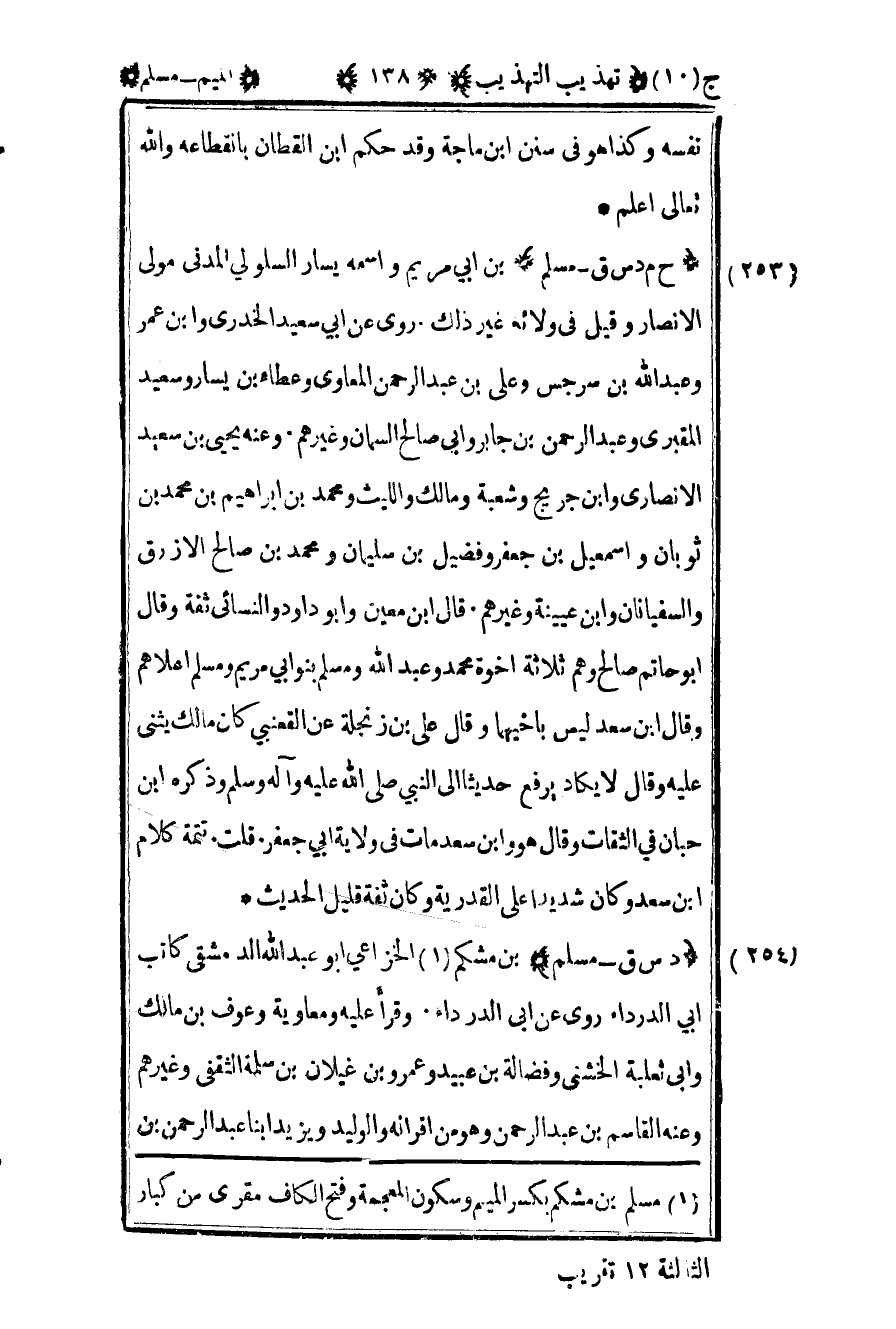 ج (١٠) ﴿ تهذيب التهذيب ﴾ ﴿ ١٣٨ ﴾ ﴿ الميم ـ مسلم ﴾
نفسه وكذا هو فى سنن ابن ماجة وقد حكم ابن القطان بانقطاعه والله
تعالى اعلم *
(٢٥٣) ﴿ خ م د س ق ـ مسلم ﴾ بن ابي مريم و اسمه يسار السلولي المدنى مولى
الانصار وقيل فى ولائه غير ذلك · روى عن ابي سعيد الخدرى وابن عمر
وعبد الله بن سرجس وعلى بن عبد الرحمن المعاوى وعطاء بن يسار وسعيد
المقبرى وعبد الرحمن بن جابر وابي صالح السمان وغيرهم · وعنه يحيى بن سعيد
الانصارى وابن جريج وشعبة ومالك والليث ومحمد بن ابراهيم بن محمد بن
ثوبان و اسمعيل بن جعفر وفضيل بن سليمان و محمد بن صالح الازرق
والسفيانان وابن عيينة وغيرهم · قال ابن معين وابو داود والنسائى ثقة وقال
ابو حاتم صالح وهم ثلاثة اخوة محمد وعبد الله ومسلم بنو ابي مريم ومسلم اعلاهم
وقال ابن سعد ليس باخيهما و قال على بن زنجلة عن القعنبي كان مالك يثنى
عليه وقال لا يكاد يرفع حديثا الى النبي صلى الله عليه وآله وسلم وذكره ابن
حبان في الثقات وقال هو وابن سعد مات فى ولاية ابي جعفر · قلت · تتمة كلام
ابن سعد وكان شديدا على القدرية وكان ثقة قليل الحديث *
(٢٥٤) ﴿ د س ق ـ مسلم ﴾ بن مشكم (١) الخزاعي ابو عبد الله الدمشقى كاتب
ابي الدرداء روى عن ابى الدرداء · وقرأ عليه ومعاوية وعوف بن مالك
وابى ثعلبة الخشنى وفضالة بن عبيد وعمرو بن غيلان بن سلمة الثقفى وغيرهم
وعنه القاسم بن عبد الرحمن وهو من اقرانه والوليد ويزيد ابنا عبد الرحمن بن
(١) مسلم بن مشكم بكسر الميم وسكون المعجمة وفتح الكاف مقرى من كبار
الثالثة ١٢ تقريب